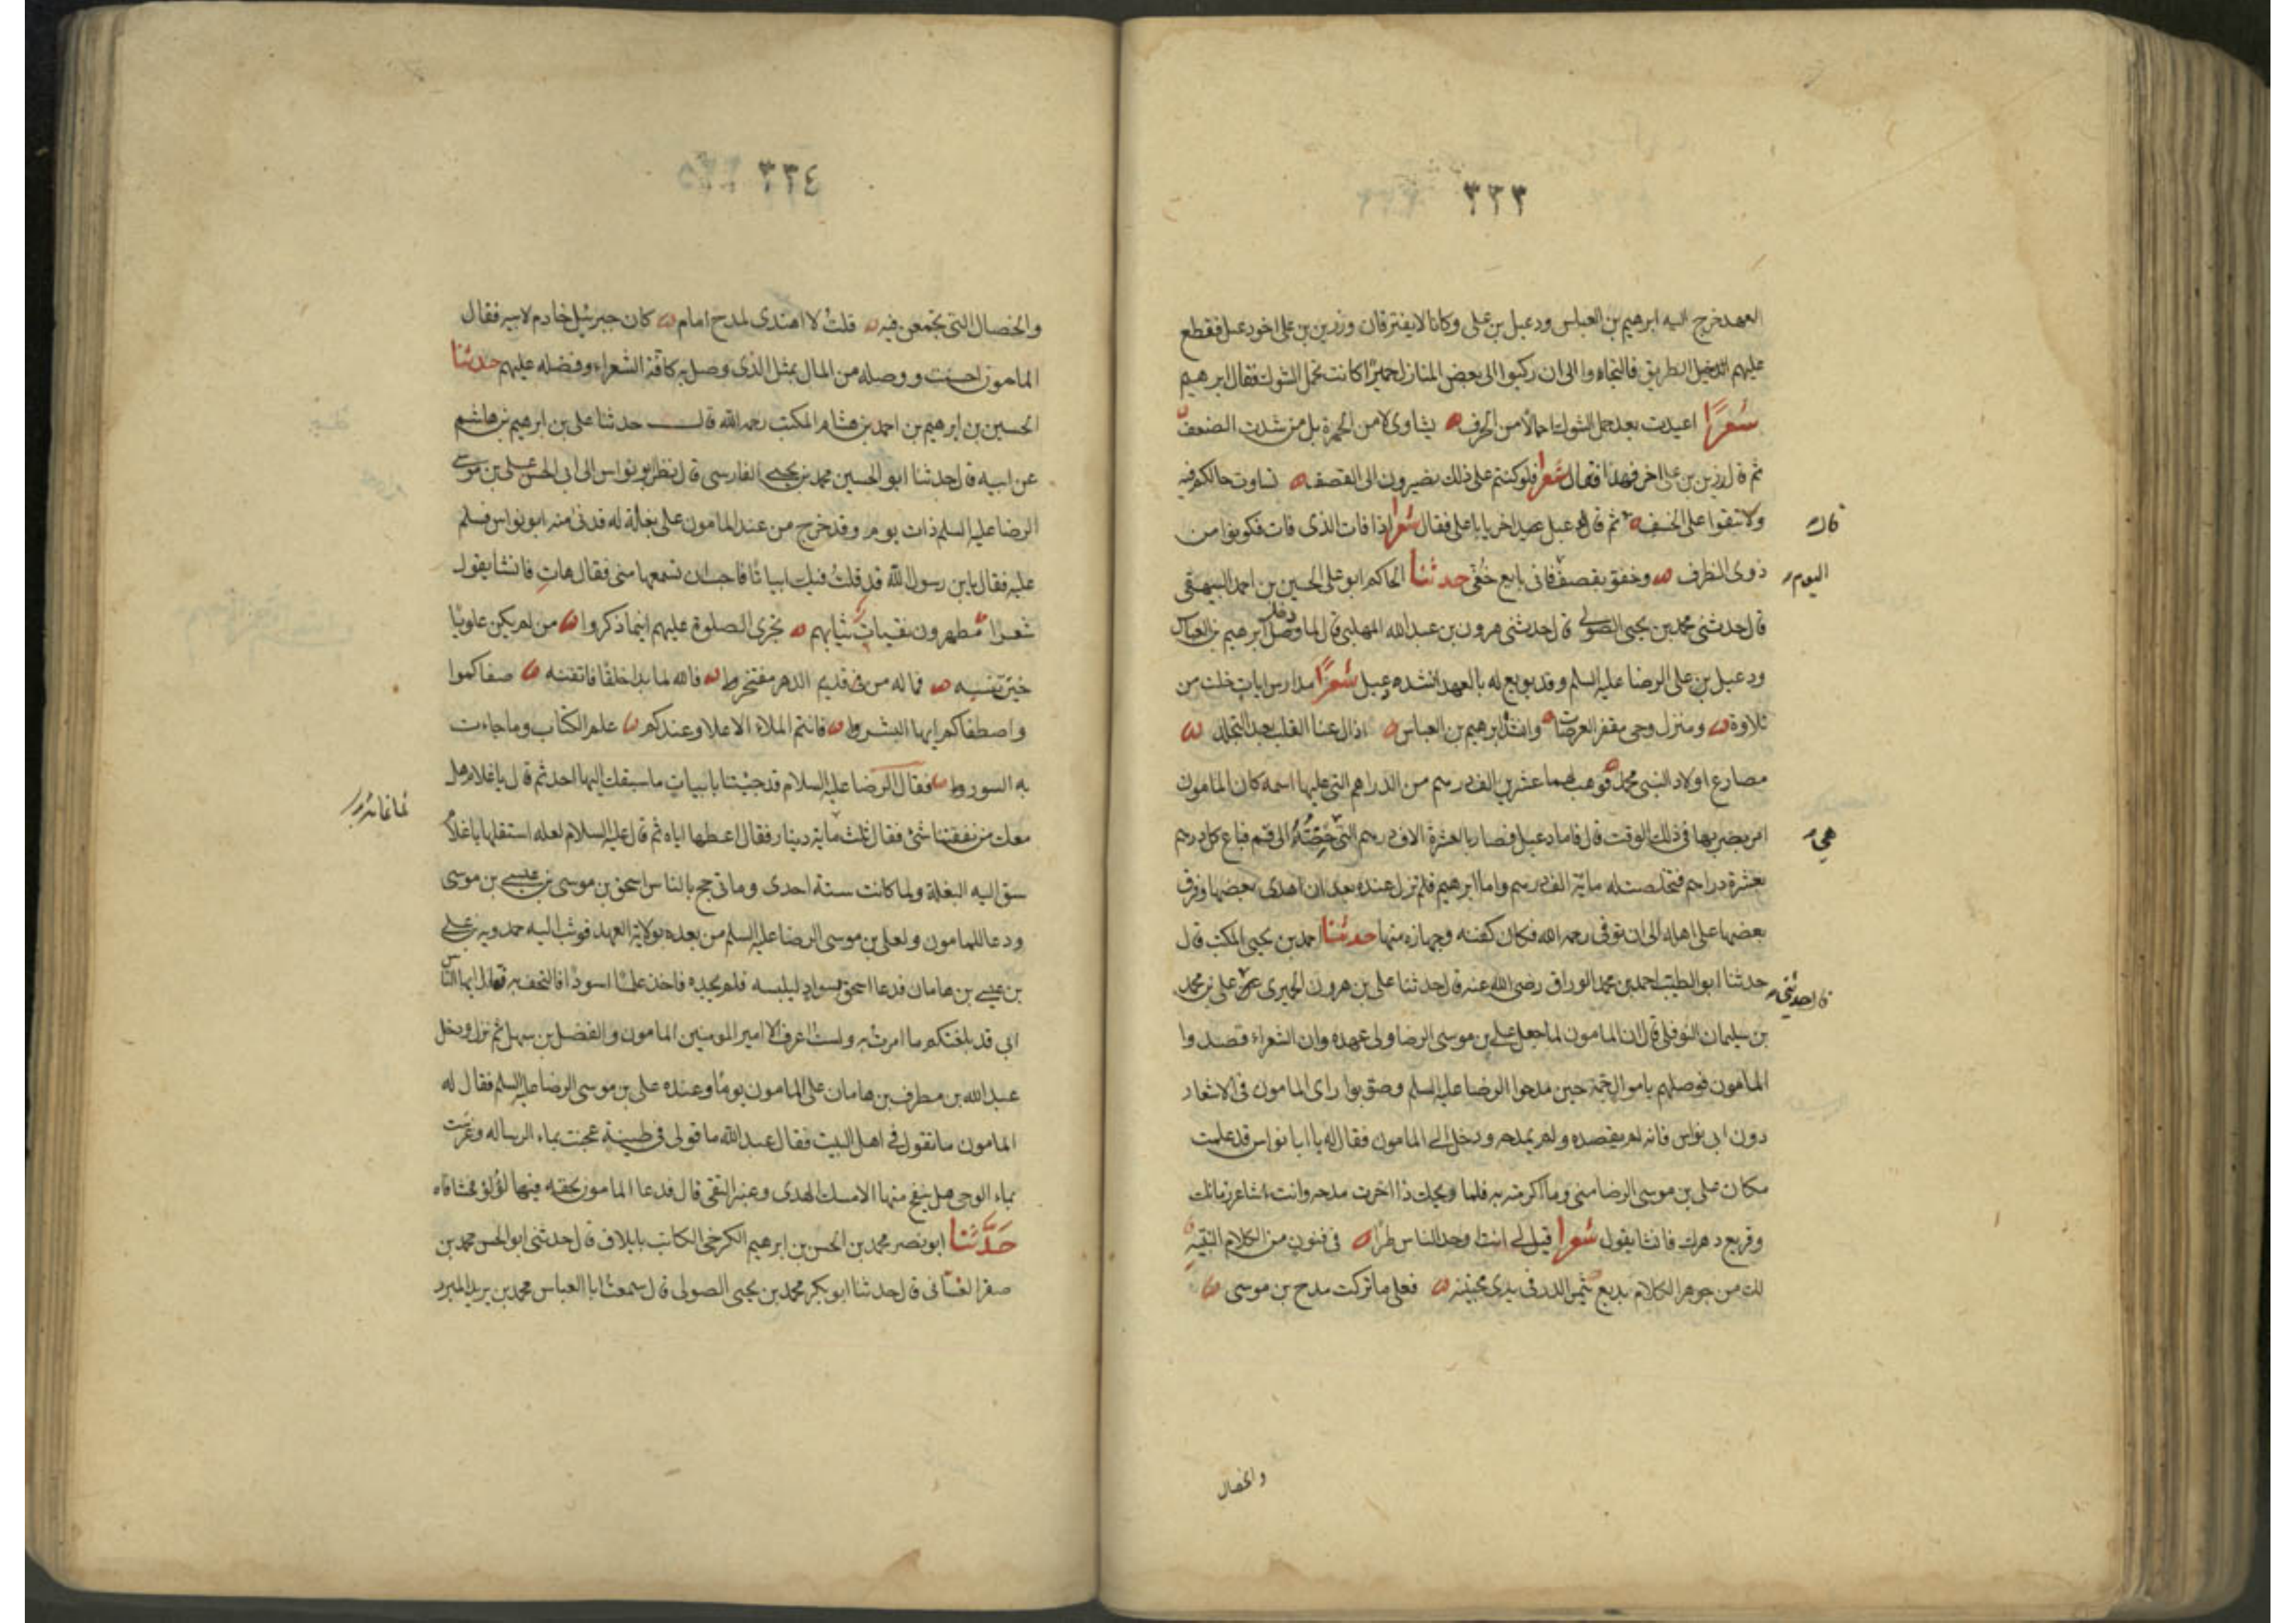 ٣٣٣
العهد خرج اليه ابرهيم بن العباس ودعبل بن على وكانا لا يفترقان ورزين بن على اخو دعبل فقطع
عليهم الطريق فالتجاوا الى ان ركبوا الى بعض المنازل حميرا كانت تحمل الشوك فقال ابرهيم
شعرًا اعيدت بعد حمل الشوك احمالا من الخزف نشاوى لا من الخمرة بل من شدت الضعف
ثم قال لرزين بن على اخر فهذا فقال شعرا فلو كنتم على ذلك تصيرون الى القصف تساوت حالكم فيه
ولا تبقوا على الخسف ثم قال لدعبل اخر يا با على فقال شعرا اذا فات الذى فات فكونوا من
قال
ذوى الظرف وخفو نقصف فانى بايع خفى حدثنا الحاكم ابو على الحسين بن احمد البيهقى
اليوم
قال حدثنى محمد بن يحيى الصولى قال حدثنى هرون بن عبد الله المهلبى قال لما وصل ابرهيم بن العباس
ودعبل بن على الرضا عليه السلم وقد بويع له بالعهد انشده دعبل شعرًا مدارس ايات خلت من
تلاوة ومنزل وحى مقفر العرصات وانشد ابرهيم بن العباس ازال عنا القلب بعد التجلد
مصارع اولاد النبى محمد فوهب لهما عشرين الف درهم من الدراهم التى عليها اسمه كان المامون
امر بضربها فى ذلك الوقت قال فاما دعبل فصار بالعشرة الاف درهم التى حصته الى قم فباع كل درهم
هى
بعشرة دراهم فتخلصت له ماية الف درهم واما ابرهيم فلم تزل عنده بعد ان اهدى بعضها وفرق
بعضها على اهله الى ان توفى رحمه الله فكان كفنه وجهازه منها حدثنا احمد بن يحيى المكتب قال
حدثنا ابو الطيب احمد بن محمد الوراق رضى الله عنه قال حدثنا على بن هرون الحميرى عن على بن محمد
قال حدثنى
بن سليمان النوفلى قال ان المامون لما جعل على بن موسى الرضا ولى عهده وان الشعراء قصدوا
المامون فوصلهم باموال جمة حين مدحوا الرضا عليه السلم وصوبوا راى المامون فى الاشعار
دون ابى نواس فانه لم يقصده ولم يمدحه ودخل الى المامون فقال له يا ابا نواس قد علمت
مكان على بن موسى الرضا منى وما اكرمته به فلما ذا اخرت مدحه وانت شاعر زمانك
وقريع دهرك فانشا يقول شعرا قيل لى انت اوحد الناس طرا فى فنون من الكلام النبيه
لك من جوهر الكلام بديع يثمر الدر فى يدى مجتنيه فعلى ما تركت مدح بن موسى
والخصال
٣٣٤
والخصال التى تجمعن فيه قلت لا اهتدى لمدح امام كان جبرئيل خادم لابيه فقال
المامون احسنت ووصله من المال بمثل الذى وصل به كافة الشعراء وفضله عليهم حدثنا
الحسين بن ابرهيم بن احمد بن هشام المكتب رحمه الله قال حدثنا على بن ابرهيم بن هاشم
عن ابيه قال حدثنا ابو الحسين محمد بن يحيى الفارسى قال نظر ابو نواس الى ابى الحسن على بن موسى
الرضا عليه السلم ذات يوم وقد خرج من عند المامون على بغلة له فدنى منه ابو نواس فسلم
عليه فقال يابن رسول الله قد قلت فيك ابياتا فاحب ان تسمعها منى فقال هات فانشا يقول
شعرًا مطهرون نقيات ثيابهم تجرى الصلوة عليهم اينما ذكروا من لم يكن علويا
حين تنسبه فما له من فى قديم الدهر مفتخر ط فالله لما بدا خلقا فاتقنه صفاكموا
واصطفاكم ايها البشر ط فانتم الملاء الاعلا وعندكم علم الكتاب وما جاءت
به السور ط فقال الرضا عليه السلام قد جيتنا بابيات ما سبقك اليها احد ثم قال يا غلام هل
معك من نفقتنا شئ فقال ثلث ماية دينار فقال اعطها اياه ثم قال عليه السلام لعله استقلها يا غلام
سق اليه البغلة ولما كانت سنة احدى وماتى حج بالناس اسحق بن موسى بن عيسى بن موسى
ودعا للمامون ولعلى بن موسى الرضا عليه السلم من بعده بولاية العهد فوثب اليه حمدويه بن على
بن عيسى بن هامان فدعا اسحق بسواد ليلبسه فلم يجده فاخذ علما اسودا فالتحف به فقال ايها الناس
انى قد بلغتكم ما امرت به ولست اعرف الا امير المومنين المامون والفضل بن سهل ثم نزل ودخل
عبد الله بن مطرف بن هامان على المامون يوما وعنده على بن موسى الرضا عليه السلم فقال له
المامون ما تقول فى اهل البيت فقال عبد الله ما قولى فى طينة عجنت بماء الرساله وغرست
بماء الوحى هل ينفح منها الا مسك الهدى وعنبر التقى قال فدعا المامون بحقه فيها لؤلؤ فحشا فاه
حدَّثنا ابو نصر محمد بن الحسن بن ابرهيم الكرخى الكاتب بايلاق قال حدثنى ابو الحسن محمد بن
صقر الغسانى قال حدثنا ابو بكر محمد بن يحيى الصولى قال سمعت ابا العباس محمد بن يزيد المبرد